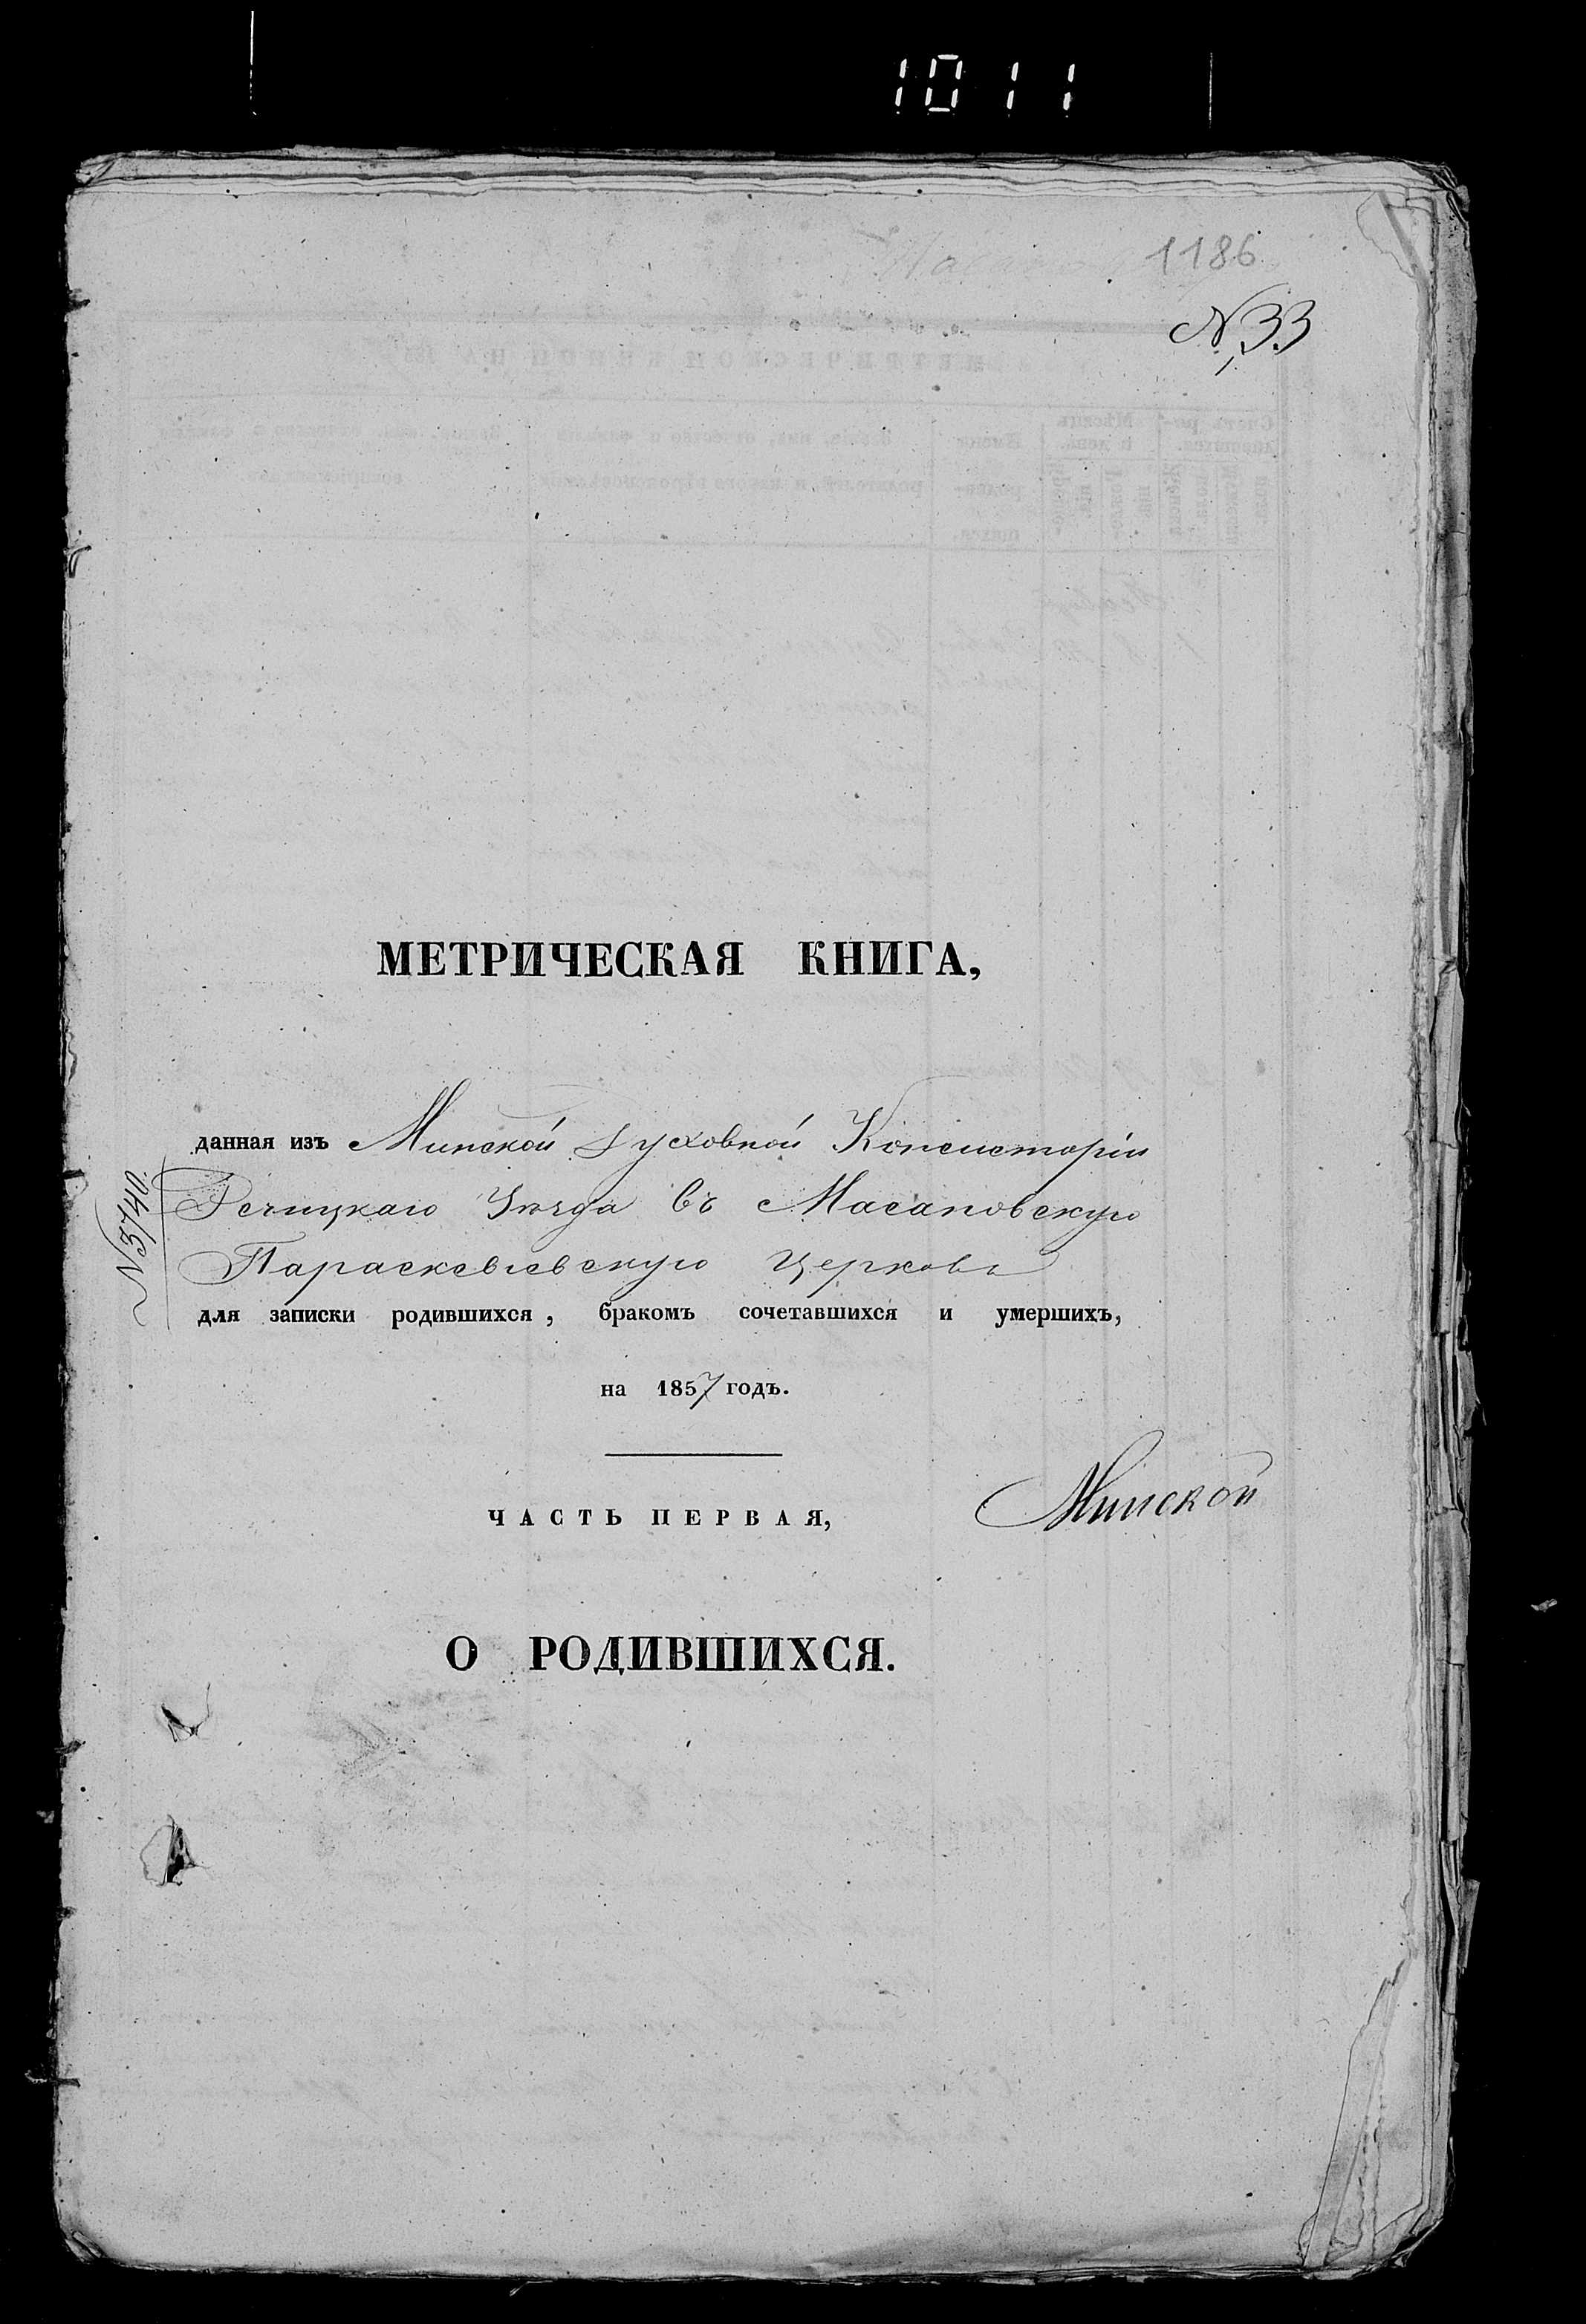 1011
1186
№ 33
МЕТРИЧЕСКАЯ КНИГА,
данная изъ Минской Духовной Консисторіи
Речицкаго Уѣзда въ Масановскую
Параскевіевскую Церковь
№ 3740.
для записки родившихся, бракомъ сочетавшихся и умершихъ,
на 1857 годъ.
ЧАСТЬ ПЕРВАЯ,
Минской
О РОДИВШИХСЯ.